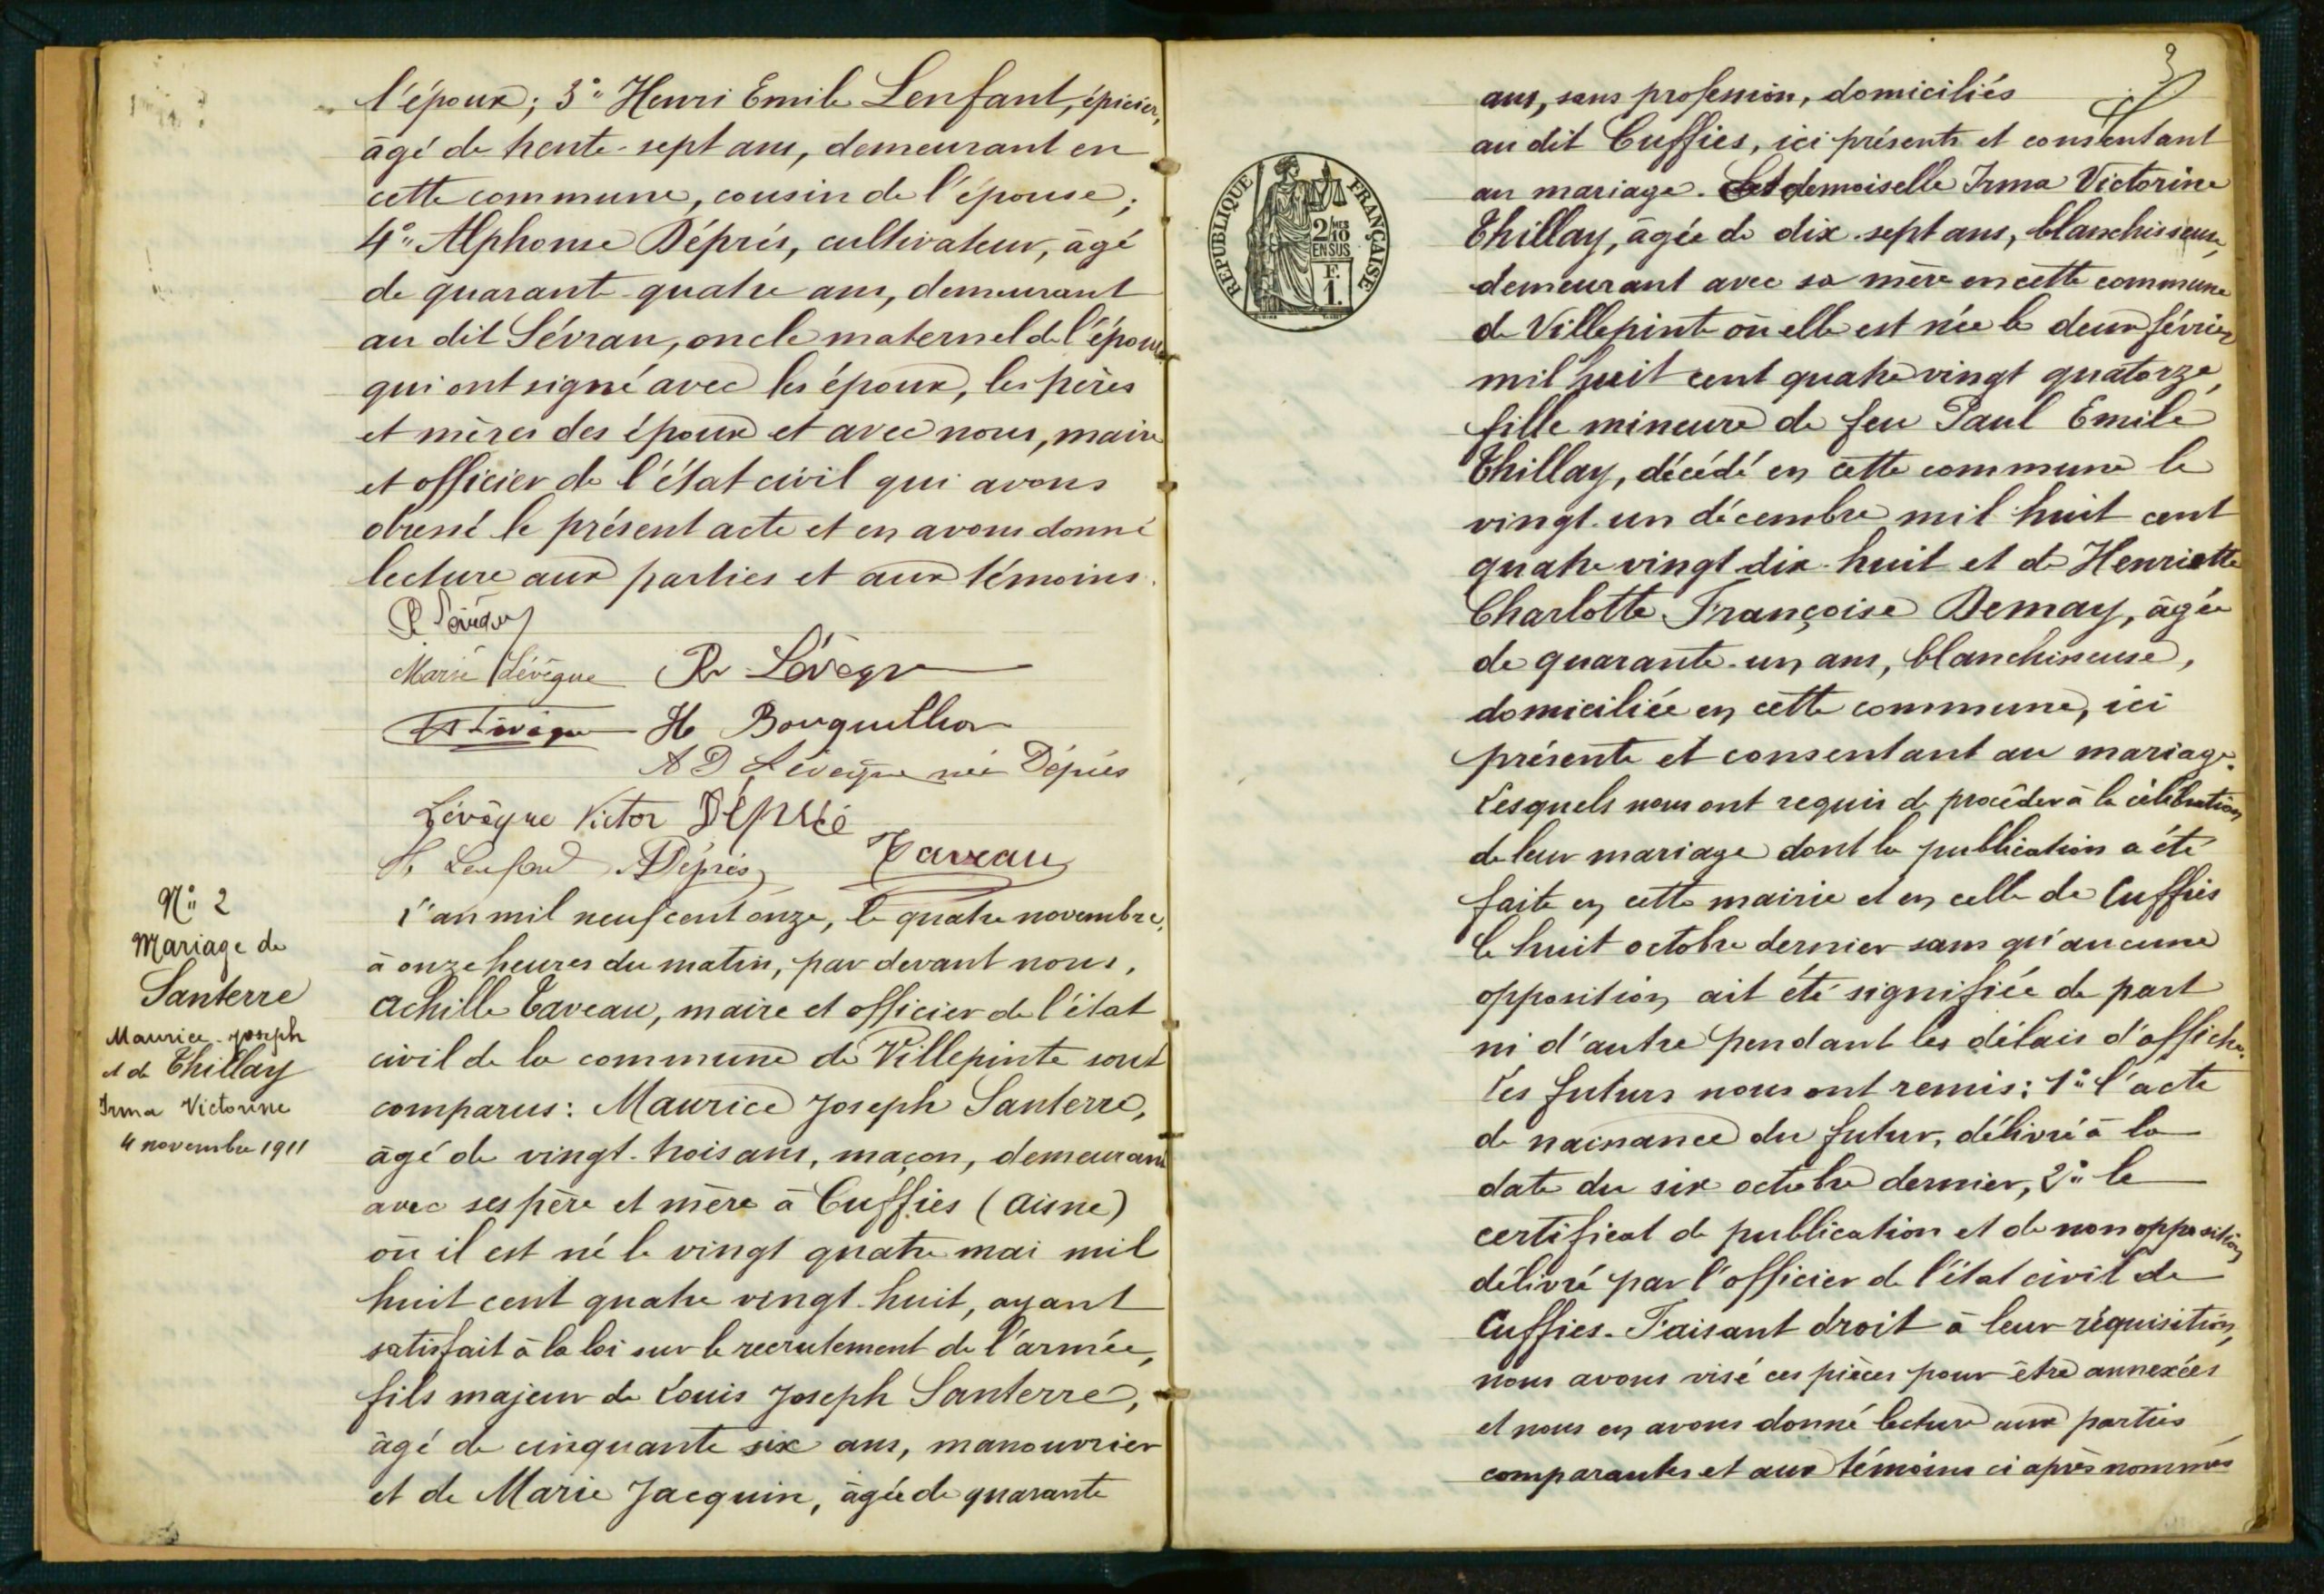 l'époux; 3° Henri Emile Lenfant, épicier,
âgé de trente-sept ans, demeurant en
cette commune, cousin de l'épouse;
4° Alphonse Dépris, cultivateur, âgé
de quarante-quatre ans, demeurant
au dit Sévran, oncle maternel de l'époux
qui ont signé avec les époux, les pères
et mères des époux et avec nous, maire
et officier de l'état civil qui avons
dressé le présent acte et en avons donné
lecture aux parties et aux témoins.
Marie Lévêque R Lévêque
Lévêque H Bouquillon
A D Lévêque née Dépris
Lévêque Victor
H. Lenfant A Dépris Taveau
N° 2
Mariage de
Santerre
Maurice-Joseph
et de Thillay
Irma Victorine
4 novembre 1911
L'an mil neuf cent onze, le quatre novembre,
à onze heures du matin, par devant nous,
Achille Taveau, maire et officier de l'état
civil de la commune de Villepinte sont
comparus: Maurice Joseph Santerre,
âgé de vingt-trois ans, maçon, demeurant
avec ses père et mère à Cuffies (Aisne)
où il est né le vingt quatre mai mil
huit cent quatre vingt-huit, ayant
satisfait à la loi sur le recrutement de l'armée,
fils majeur de Louis Joseph Santerre,
âgé de cinquante six ans, manouvrier
et de Marie Jacquin, âgée de quarante
3
ans, sans profession, domiciliés
au dit Cuffies, ici présents et consentant
au mariage. Et demoiselle Irma Victorine
Thillay, âgée de dix-sept ans, blanchisseuse,
demeurant avec sa mère en cette commune
de Villepinte où elle est née le deux février
mil huit cent quatre vingt quatorze,
fille mineure de feu Paul Emile
Thillay, décédé en cette commune le
vingt-un décembre mil huit cent
quatre vingt dix-huit et de Henriette
Charlotte Françoise Demay, âgée
de quarante-un ans, blanchisseuse,
domiciliée en cette commune, ici
présente et consentant au mariage.
Lesquels nous ont requis de procéder à la célébration
de leur mariage dont la publication a été
faite en cette mairie et en celle de Cuffies
le huit octobre dernier sans qu'aucune
opposition ait été signifiée de part
ni d'autre pendant les délais d'affiche.
Les futurs nous ont remis: 1° l'acte
de naissance du futur, délivré à la
date du six octobre dernier, 2° le
certificat de publication et de non opposition
délivré par l'officier de l'état civil de
Cuffies. Faisant droit à leur réquisition,
nous avons visé ces pièces pour être annexées
et nous en avons donné lecture aux parties
comparantes et aux témoins ci après nommés
RÉPUBLIQUE FRANÇAISE
2/10
EN SUS
F.
1.